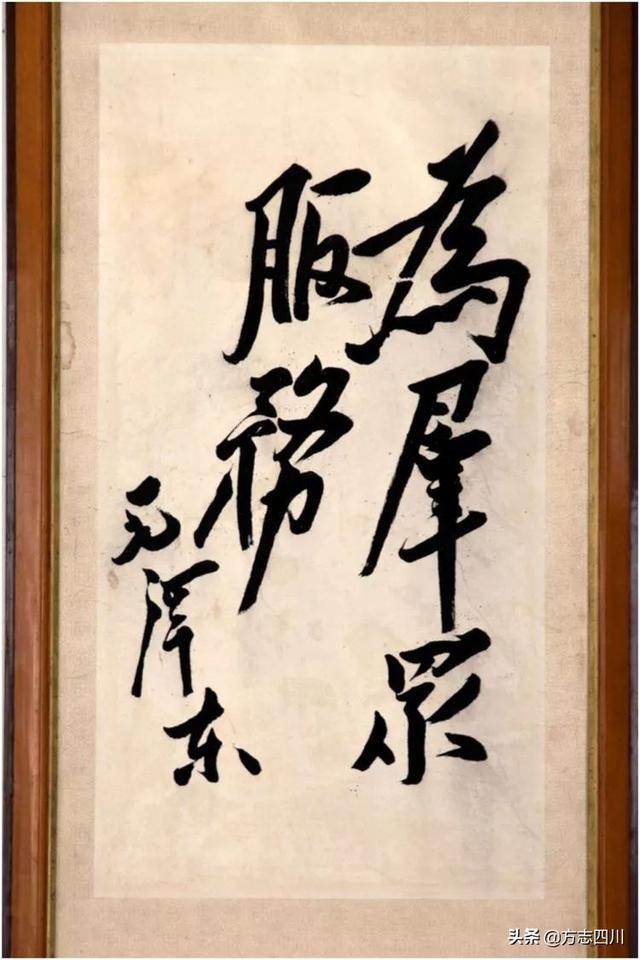 為羣眾
服務
毛澤东
头条 @方志四川